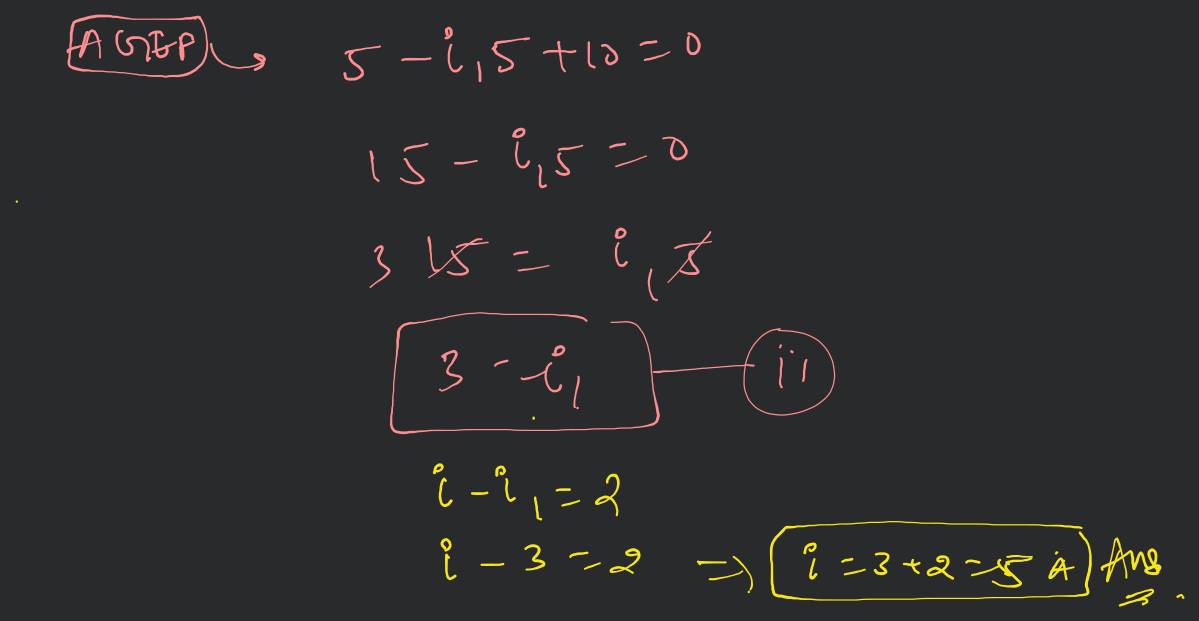 AGEP → 5 - i₁5 + 10 = 0
15 - i₁5 = 0
3 15 = i₁5
3 = i₁ — ii
i - i₁ = 2
i - 3 = 2 ⇒ i = 3 + 2 = 5 A Ans